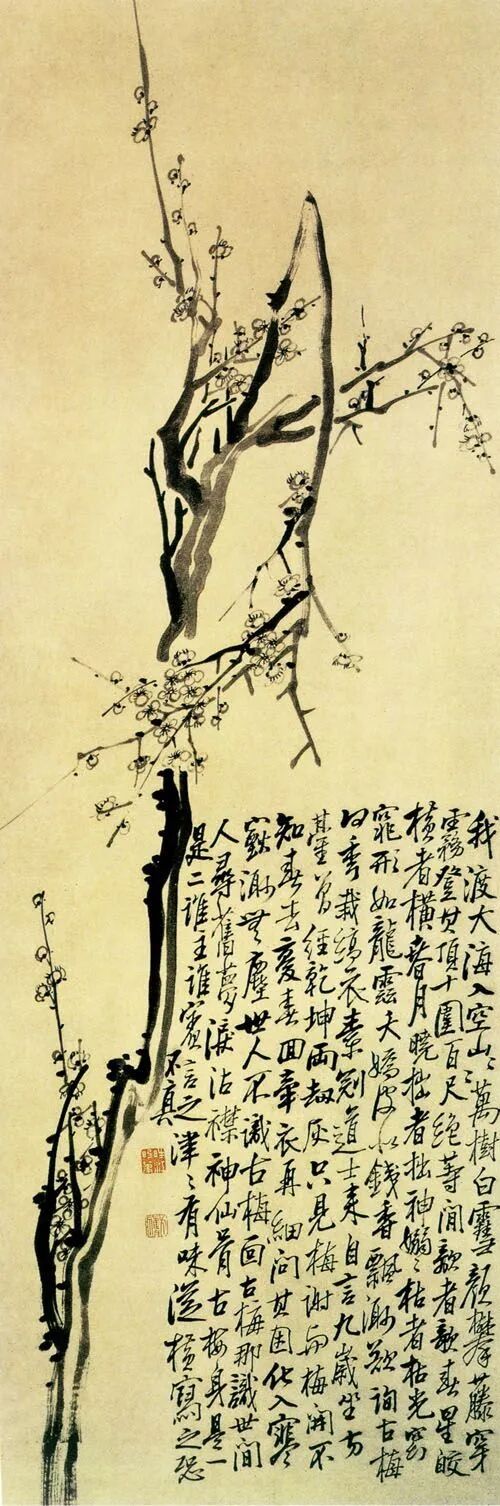 我渡大海入空山〻萬樹白雪顏攀藤穿
霧登其頂十圍百尺絕等閒欹者欹春星皎
橫者橫春月曉拙者拙神嫋〻枯者枯光窈
窕形如龍靈夭矯皮似錢香飄渺欲詢古梅
何季栽縞衣素冠道士來自言九歲坐方
曾經乾坤兩劫灰只見梅謝與梅開不
知春去春回牽衣再細問其因化入寥
渺無塵世人不識古梅面古梅那識世間
人尋舊夢淚沾襟神仙骨古梅身是一
是二誰主誰賓言之津〻有味從橫寫之恐
不真